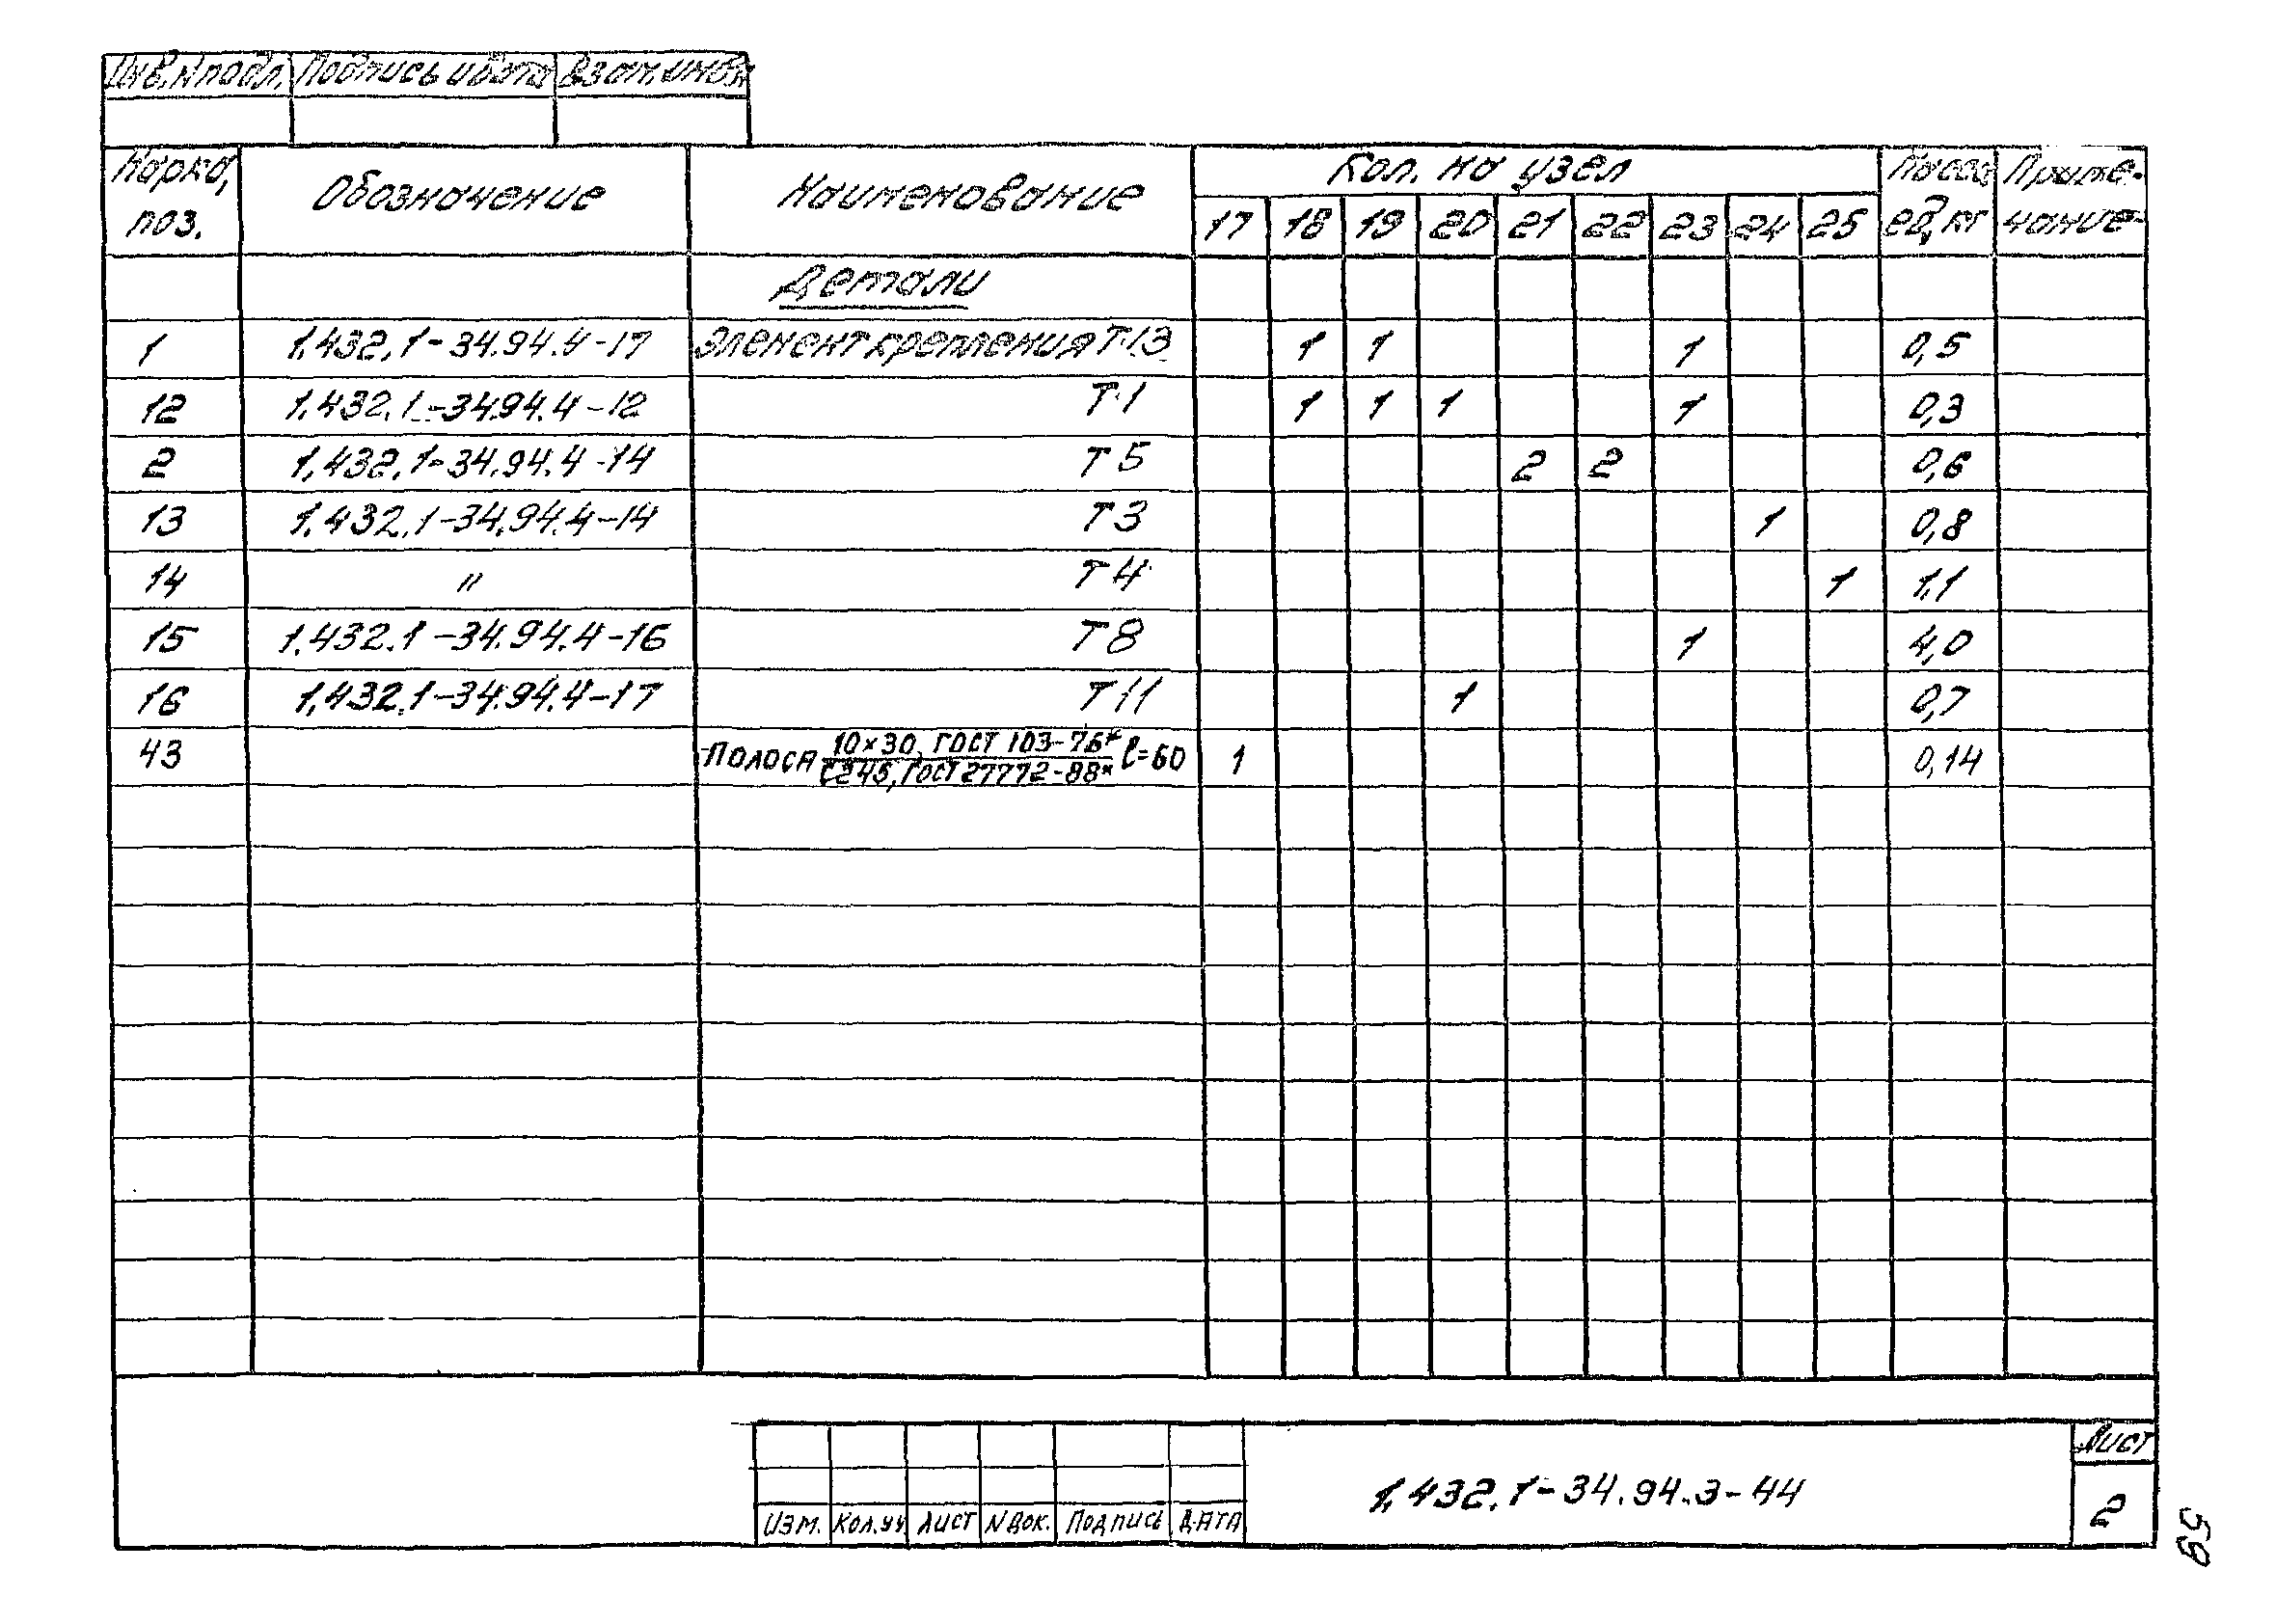 Инв.№подл. Подпись и дата Взам.инв.№
Марка, поз. Обозначение Наименование Кол. на узел Масса ед, кг Приме-чание
17 18 19 20 21 22 23 24 25
Детали
1 1.432.1-34.94.4-17 Элемент крепления Т13 1 1 1 0,5
12 1.432.1-34.94.4-12 Т1 1 1 1 1 0,3
2 1.432.1-34.94.4-14 Т5 2 2 0,6
13 1.432.1-34.94.4-14 Т3 1 0,8
14 " Т4 1 1,1
15 1.432.1-34.94.4-16 Т8 1 4,0
16 1.432.1-34.94.4-17 Т11 1 0,7
43 Полоса 10×30, ГОСТ 103-76* / С245, ГОСТ 27772-88* ℓ=60 1 0,14
Изм. Кол.уч Лист N док. Подпись Дата
1.432.1-34.94.3-44
Лист
2
59